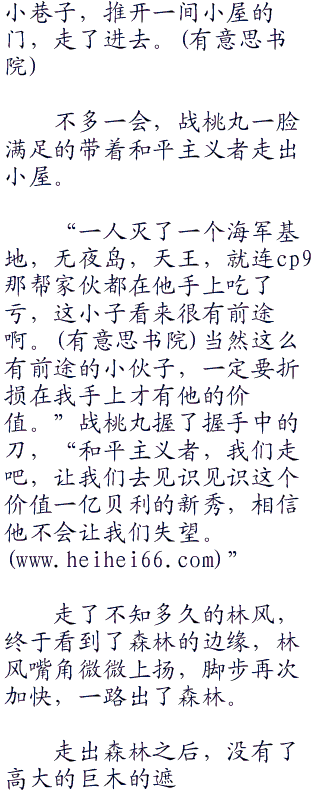 小巷子，推开一间小屋的
门，走了进去。(有意思书
院)
不多一会，战桃丸一脸
满足的带着和平主义者走出
小屋。
“一人灭了一个海军基
地，无夜岛，天王，就连cp9
那帮家伙都在他手上吃了
亏，这小子看来很有前途
啊。(有意思书院)当然这么
有前途的小伙子，一定要折
损在我手上才有他的价
值。”战桃丸握了握手中的
刀，“和平主义者，我们走
吧，让我们去见识见识这个
价值一亿贝利的新秀，相信
他不会让我们失望。
(www.heihei66.com)”
走了不知多久的林风，
终于看到了森林的边缘，林
风嘴角微微上扬，脚步再次
加快，一路出了森林。
走出森林之后，没有了
高大的巨木的遮